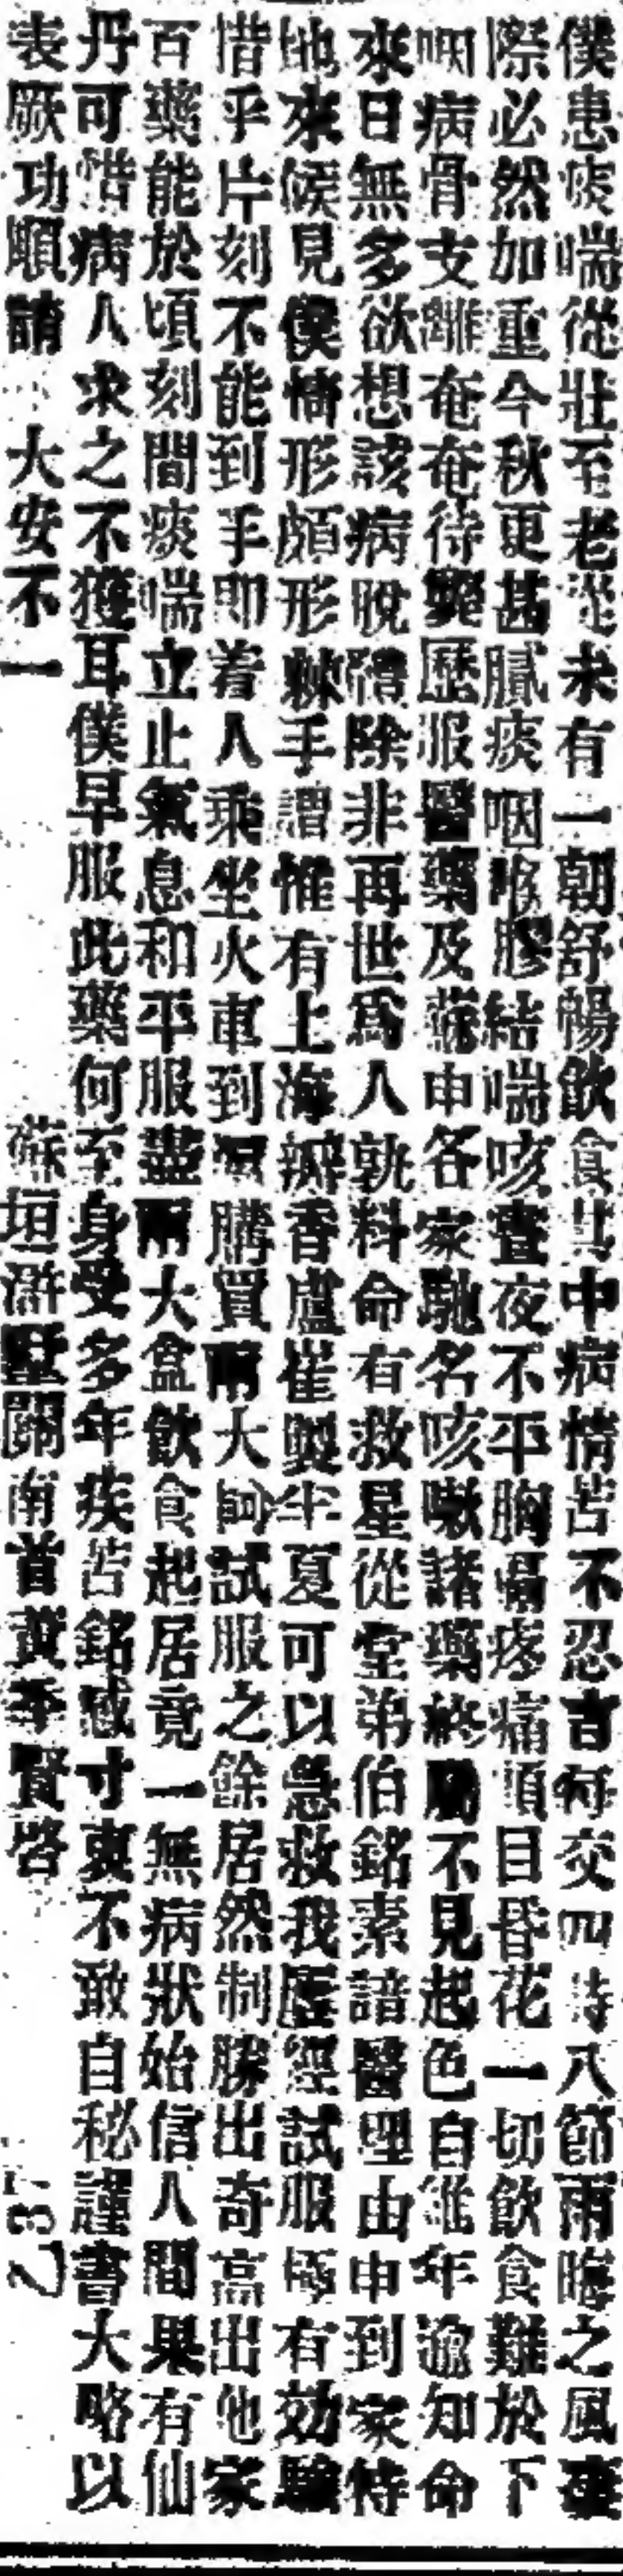 僕患痰喘從壯至老從未有一朝舒暢飲食其中病情苦不忍言每交四時八節雨晦之風淒
際必然加重今秋更甚膩痰咽喉膠結喘咳晝夜不平胸膈疼痛頭目昏花一切飲食難於下
咽病骨支離奄奄待斃歷服醫藥及蘇申各家馳名咳嗽諸藥終屬不見起色自維年逾知命
來日無多欲想該病脫體除非再世爲人孰料命有救星從堂弟伯銘素諳醫理由申到家特
地來候見僕情形頗形棘手謂惟有上海瓣香廬崔製半夏可以急救我歷經試服極有効驗
惜乎片刻不能到手即着人乘坐火車到 購買兩大 試服之餘居然制勝出奇高出他家
百藥能於頃刻間痰喘立止氣息和平服盡兩大盒飲食起居竟一無病狀始信人間果有仙
丹可惜病人求之不獲耳僕早服此藥何至身受多年疾苦銘感寸衷不敢自秘謹書大略以
表厥功順請 大安不一 蘇垣滸墅關南首黃季賢啓